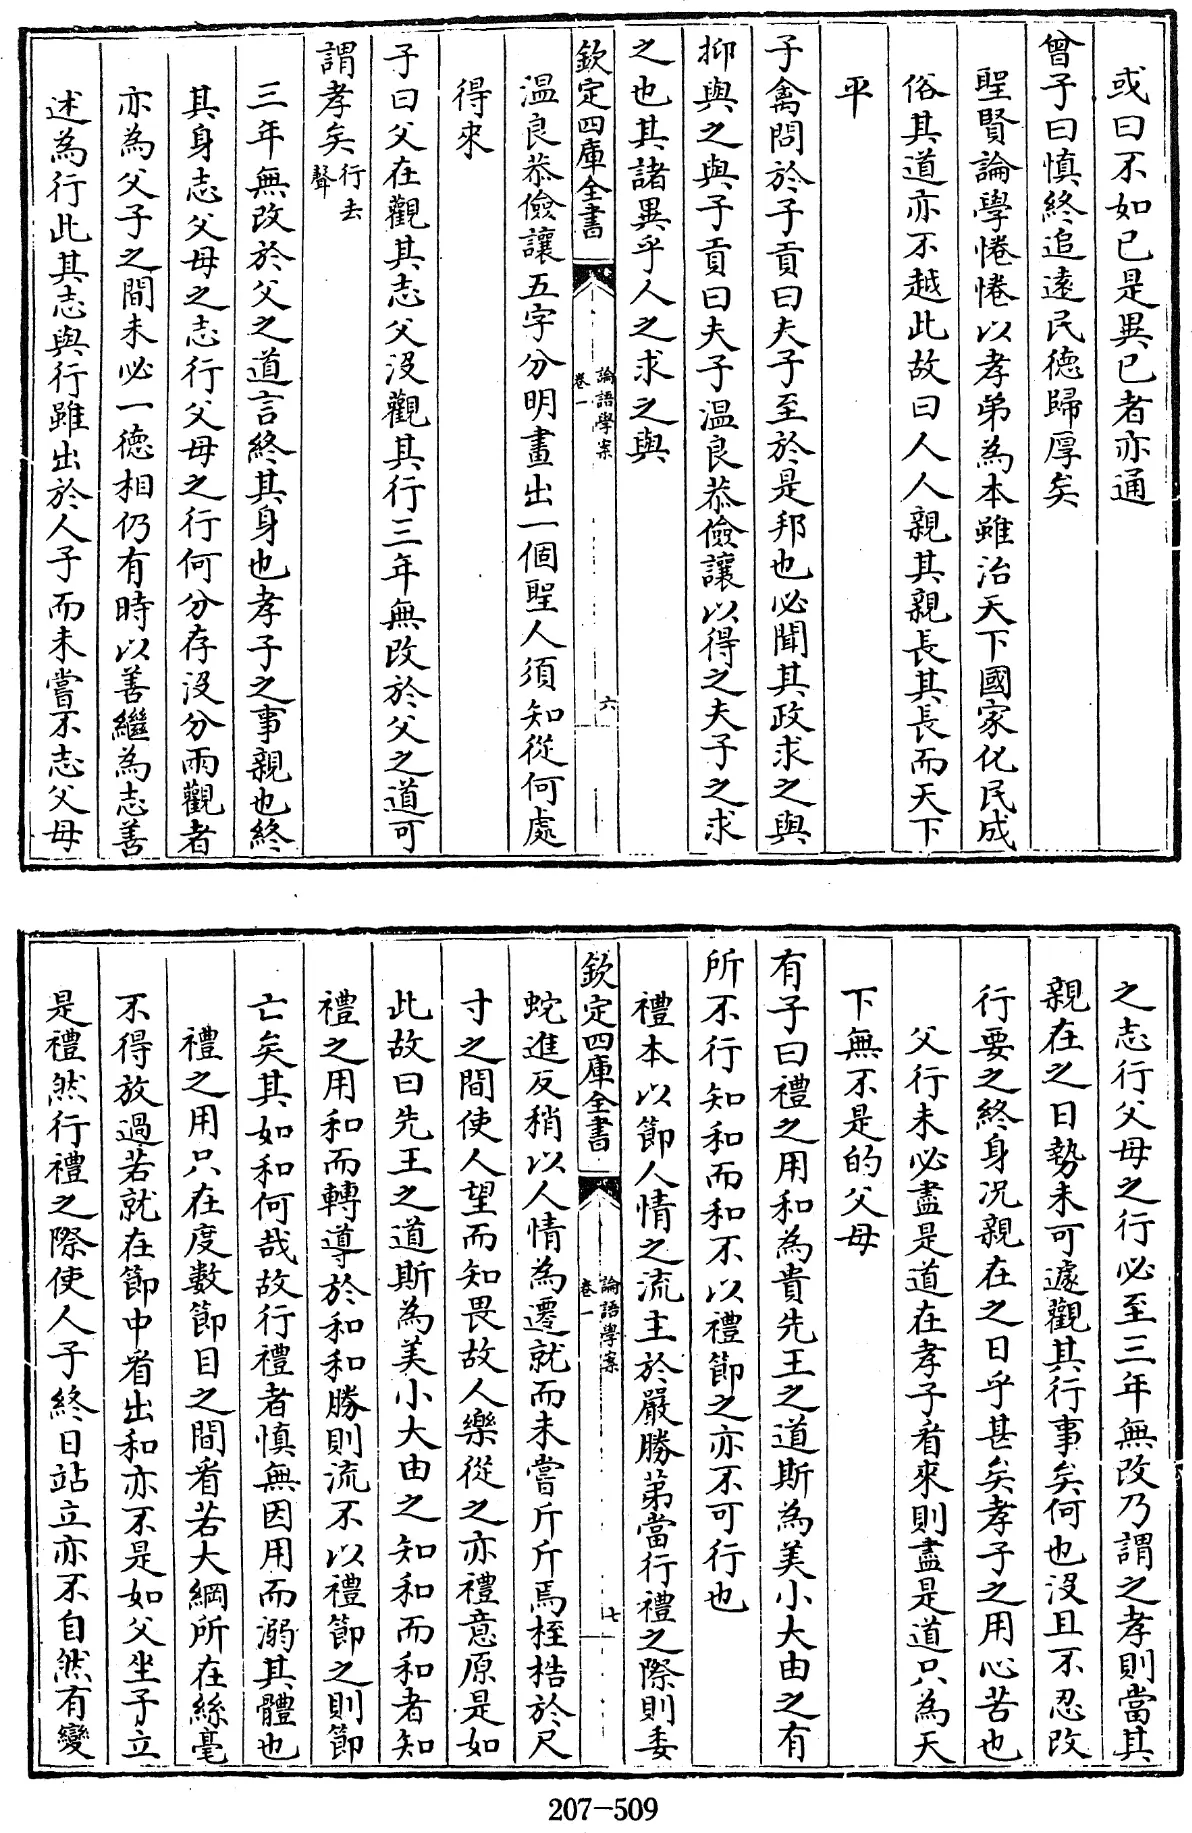 或曰不如已是異已者亦通
曾子曰慎終追遠民德歸厚矣
聖賢論學惓惓以孝弟為本雖治天下國家化民成
俗其道亦不越此故曰人人親其親長其長而天下
平
子禽問於子貢曰夫子至於是邦也必聞其政求之與
抑與之與子貢曰夫子温良恭儉讓以得之夫子之求
之也其諸異乎人之求之與
欽定四庫全書
論語學案
卷一
六
温良恭儉讓五字分明畫出一個聖人須知從何處
得來
子曰父在觀其志父没觀其行三年無改於父之道可
謂孝矣行去
聲
三年無改於父之道言終其身也孝子之事親也終
其身志父母之志行父母之行何分存没分兩觀者
亦為父子之間未必一德相仍有時以善繼為志善
述為行此其志與行雖出於人子而未嘗不志父母
之志行父母之行必至三年無改乃謂之孝則當其
親在之日勢未可遽觀其行事矣何也没且不忍改
行要之終身况親在之日乎甚矣孝子之用心苦也
父行未必盡是道在孝子看來則盡是道只為天
下無不是的父母
有子曰禮之用和為貴先王之道斯為美小大由之有
所不行知和而和不以禮節之亦不可行也
禮本以節人情之流主於嚴勝第當行禮之際則委
欽定四庫全書
論語學案
卷一
七
蛇進反稍以人情為遷就而未嘗斤斤焉桎梏於尺
寸之間使人望而知畏故人樂從之亦禮意原是如
此故曰先王之道斯為美小大由之知和而和者知
禮之用和而轉導於和和勝則流不以禮節之則節
亡矣其如和何哉故行禮者慎無因用而溺其體也
禮之用只在度數節目之間看若大綱所在絲毫
不得放過若就在節中看出和亦不是如父坐子立
是禮然行禮之際使人子終日站立亦不自然有變
207-509